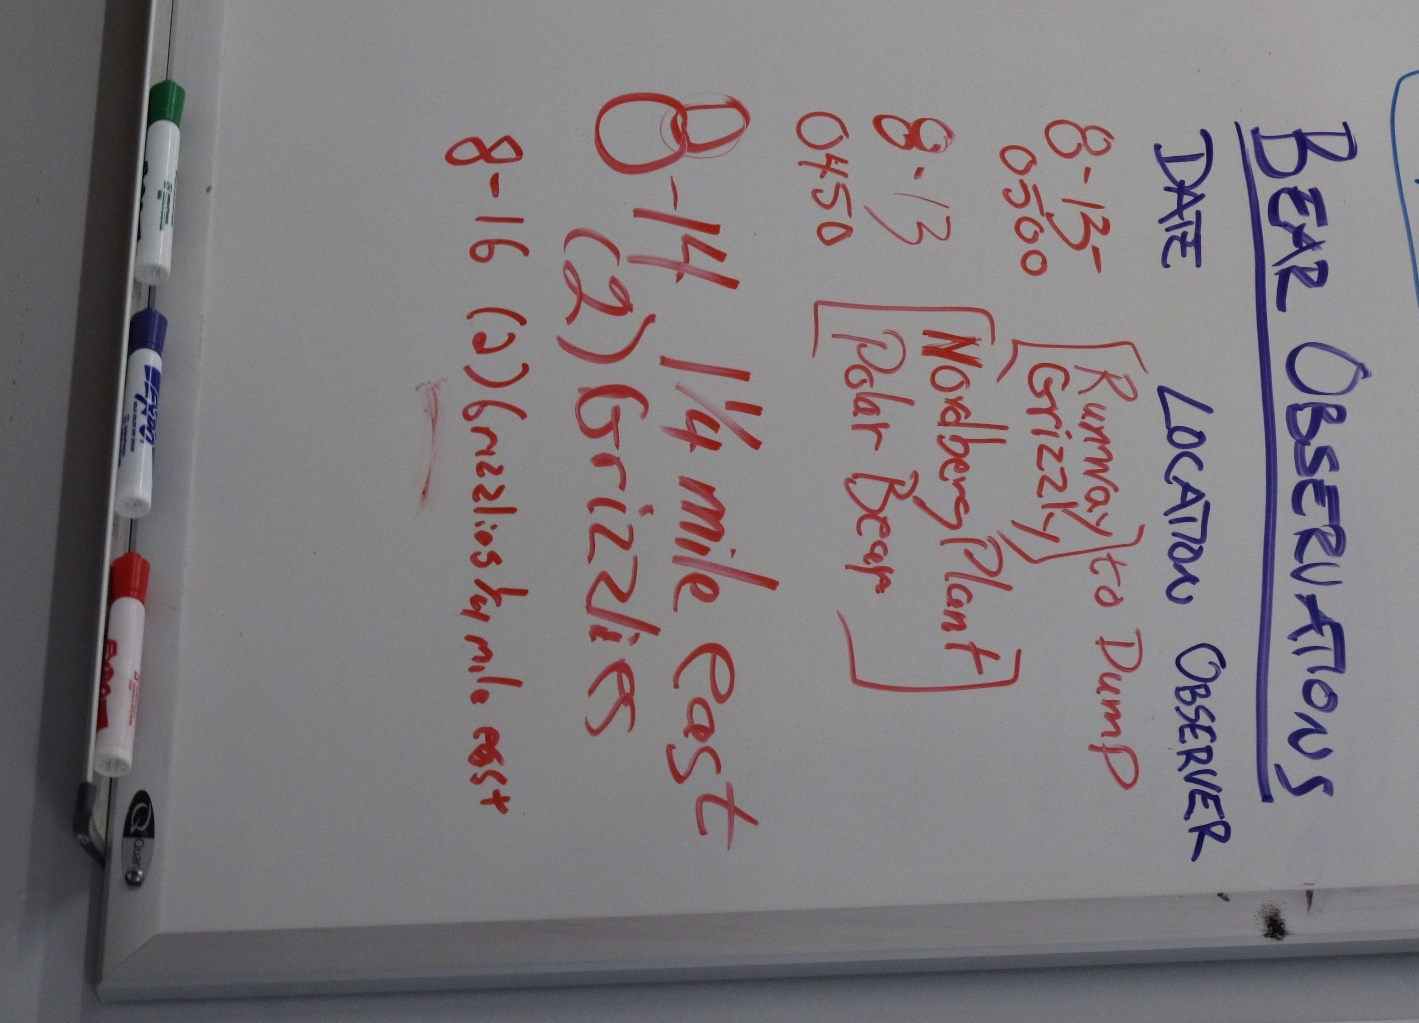 BEAR OBSERVATIONS
DATE LOCATION OBSERVER
8-13- Runway to Dump
0500 Grizzly
8-13 Nordberg Plant
0450 Polar Bear
8-14 1/4 mile East
(2) Grizzlies
8-16 (2) Grizzlies 1/4 mile east
EXPO
Quartet